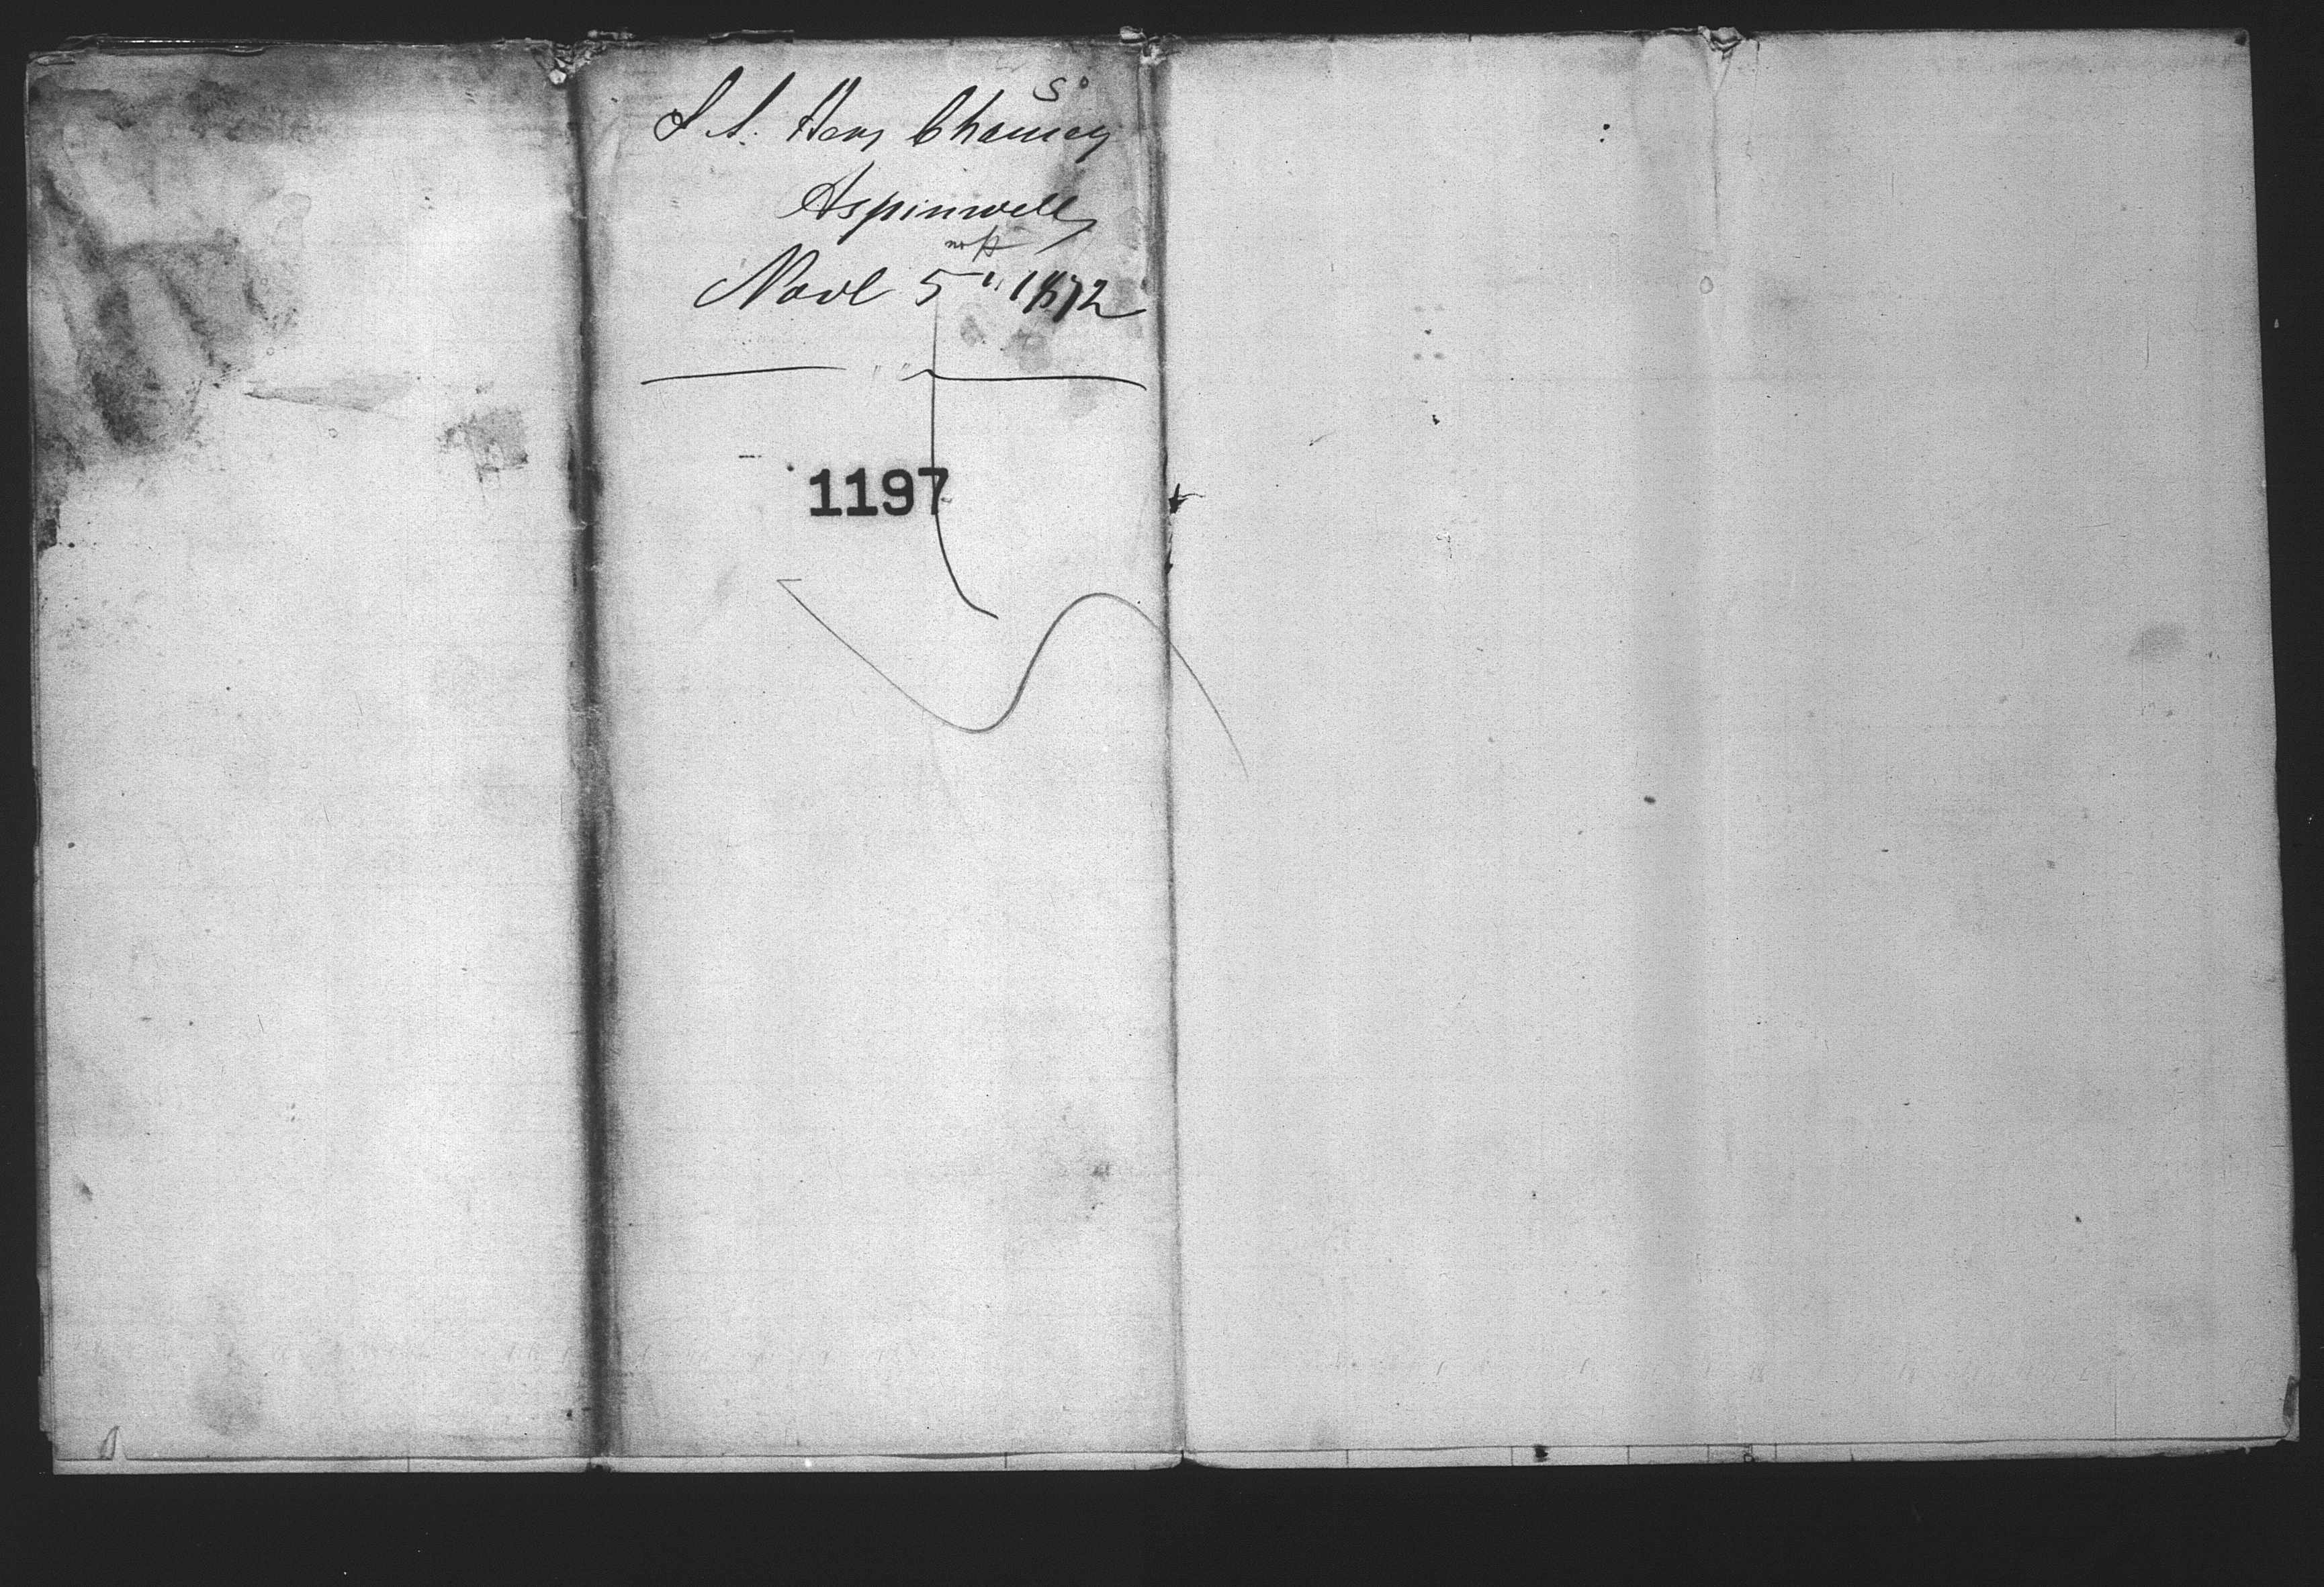 S. S. Henry Chauncey
Aspinwall
Novr 5" 1872
1197